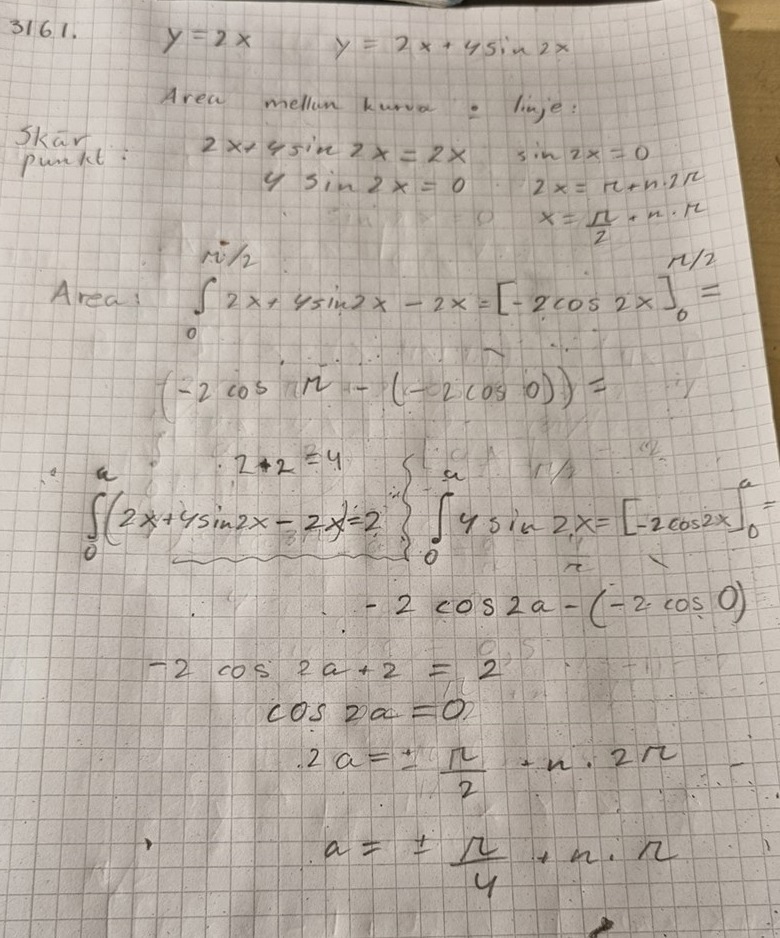 3161. y = 2x y = 2x + 4sin 2x
Area mellan kurva : linje:
Skär 2x+4sin 2x = 2x sin 2x = 0
punkt: 4 sin 2x = 0 2x = π+n·2π
x = π/2 + n·π
Area: ∫₀^(π/2) 2x+4sin2x - 2x = [-2cos 2x]₀^(π/2) =
(-2 cos π - (-2cos 0)) =
2+2=4
∫₀^a (2x+4sin2x - 2x) = 2 ∫₀^a 4 sin 2x = [-2cos2x]₀^a =
-2 cos 2a - (-2·cos 0)
-2 cos 2a + 2 = 2
cos 2a = 0
2a = ± π/2 + n·2π
a = ± π/4 + n·π